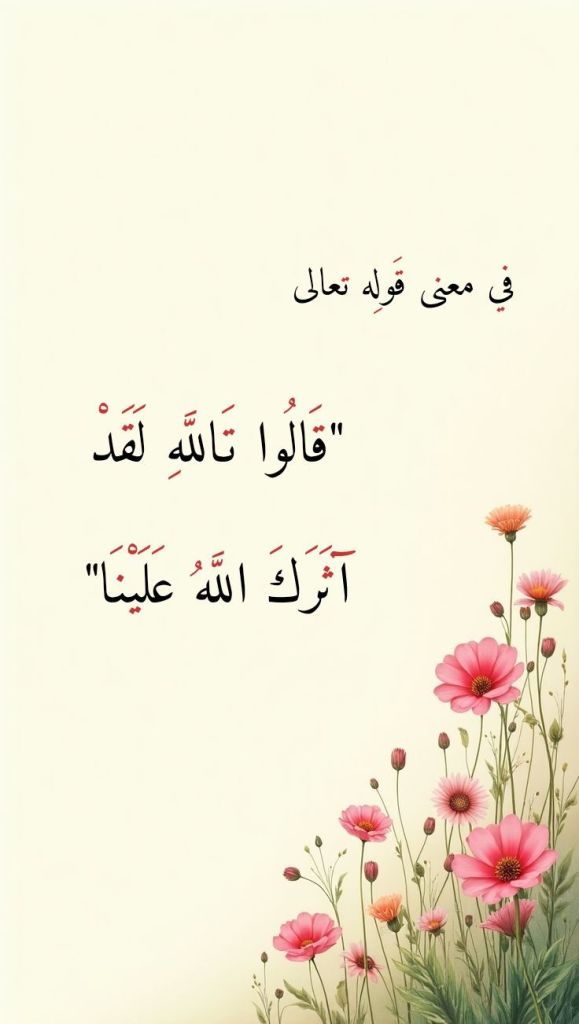 في معنى قَولِه تعالى
"قَالُوا تَاللَّهِ لَقَدْ
آثَرَكَ اللَّهُ عَلَيْنَا"